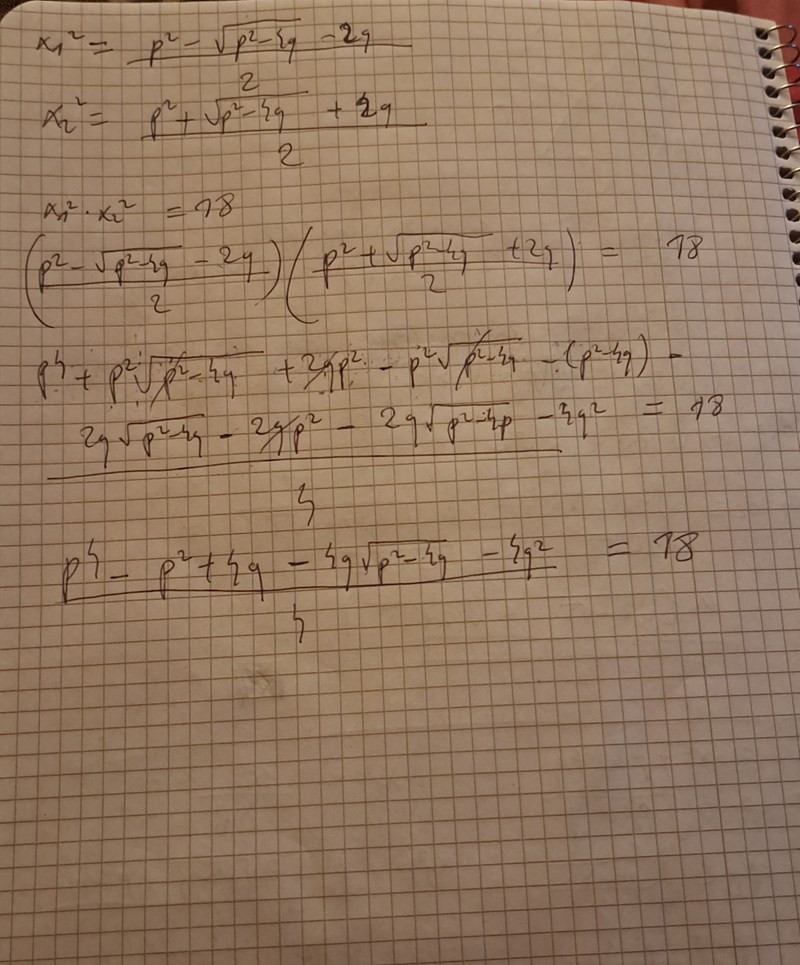 x₁² = (p² - √(p²-4q) - 2q)/2
x₂² = (p² + √(p²-4q) + 2q)/2
x₁² · x₂² = 18
((p² - √(p²-4q) - 2q)/2) ((p² + √(p²-4q) + 2q)/2) = 18
p⁴ + p²√(p²-4q) + 2qp² - p²√(p²-4q) - (p²-4q) -
2q√(p²-4q) - 2qp² - 2q√(p²-4p) - 4q² = 18
4
(p⁴ - p² + 4q - 4q√(p²-4q) - 4q²)/4 = 18